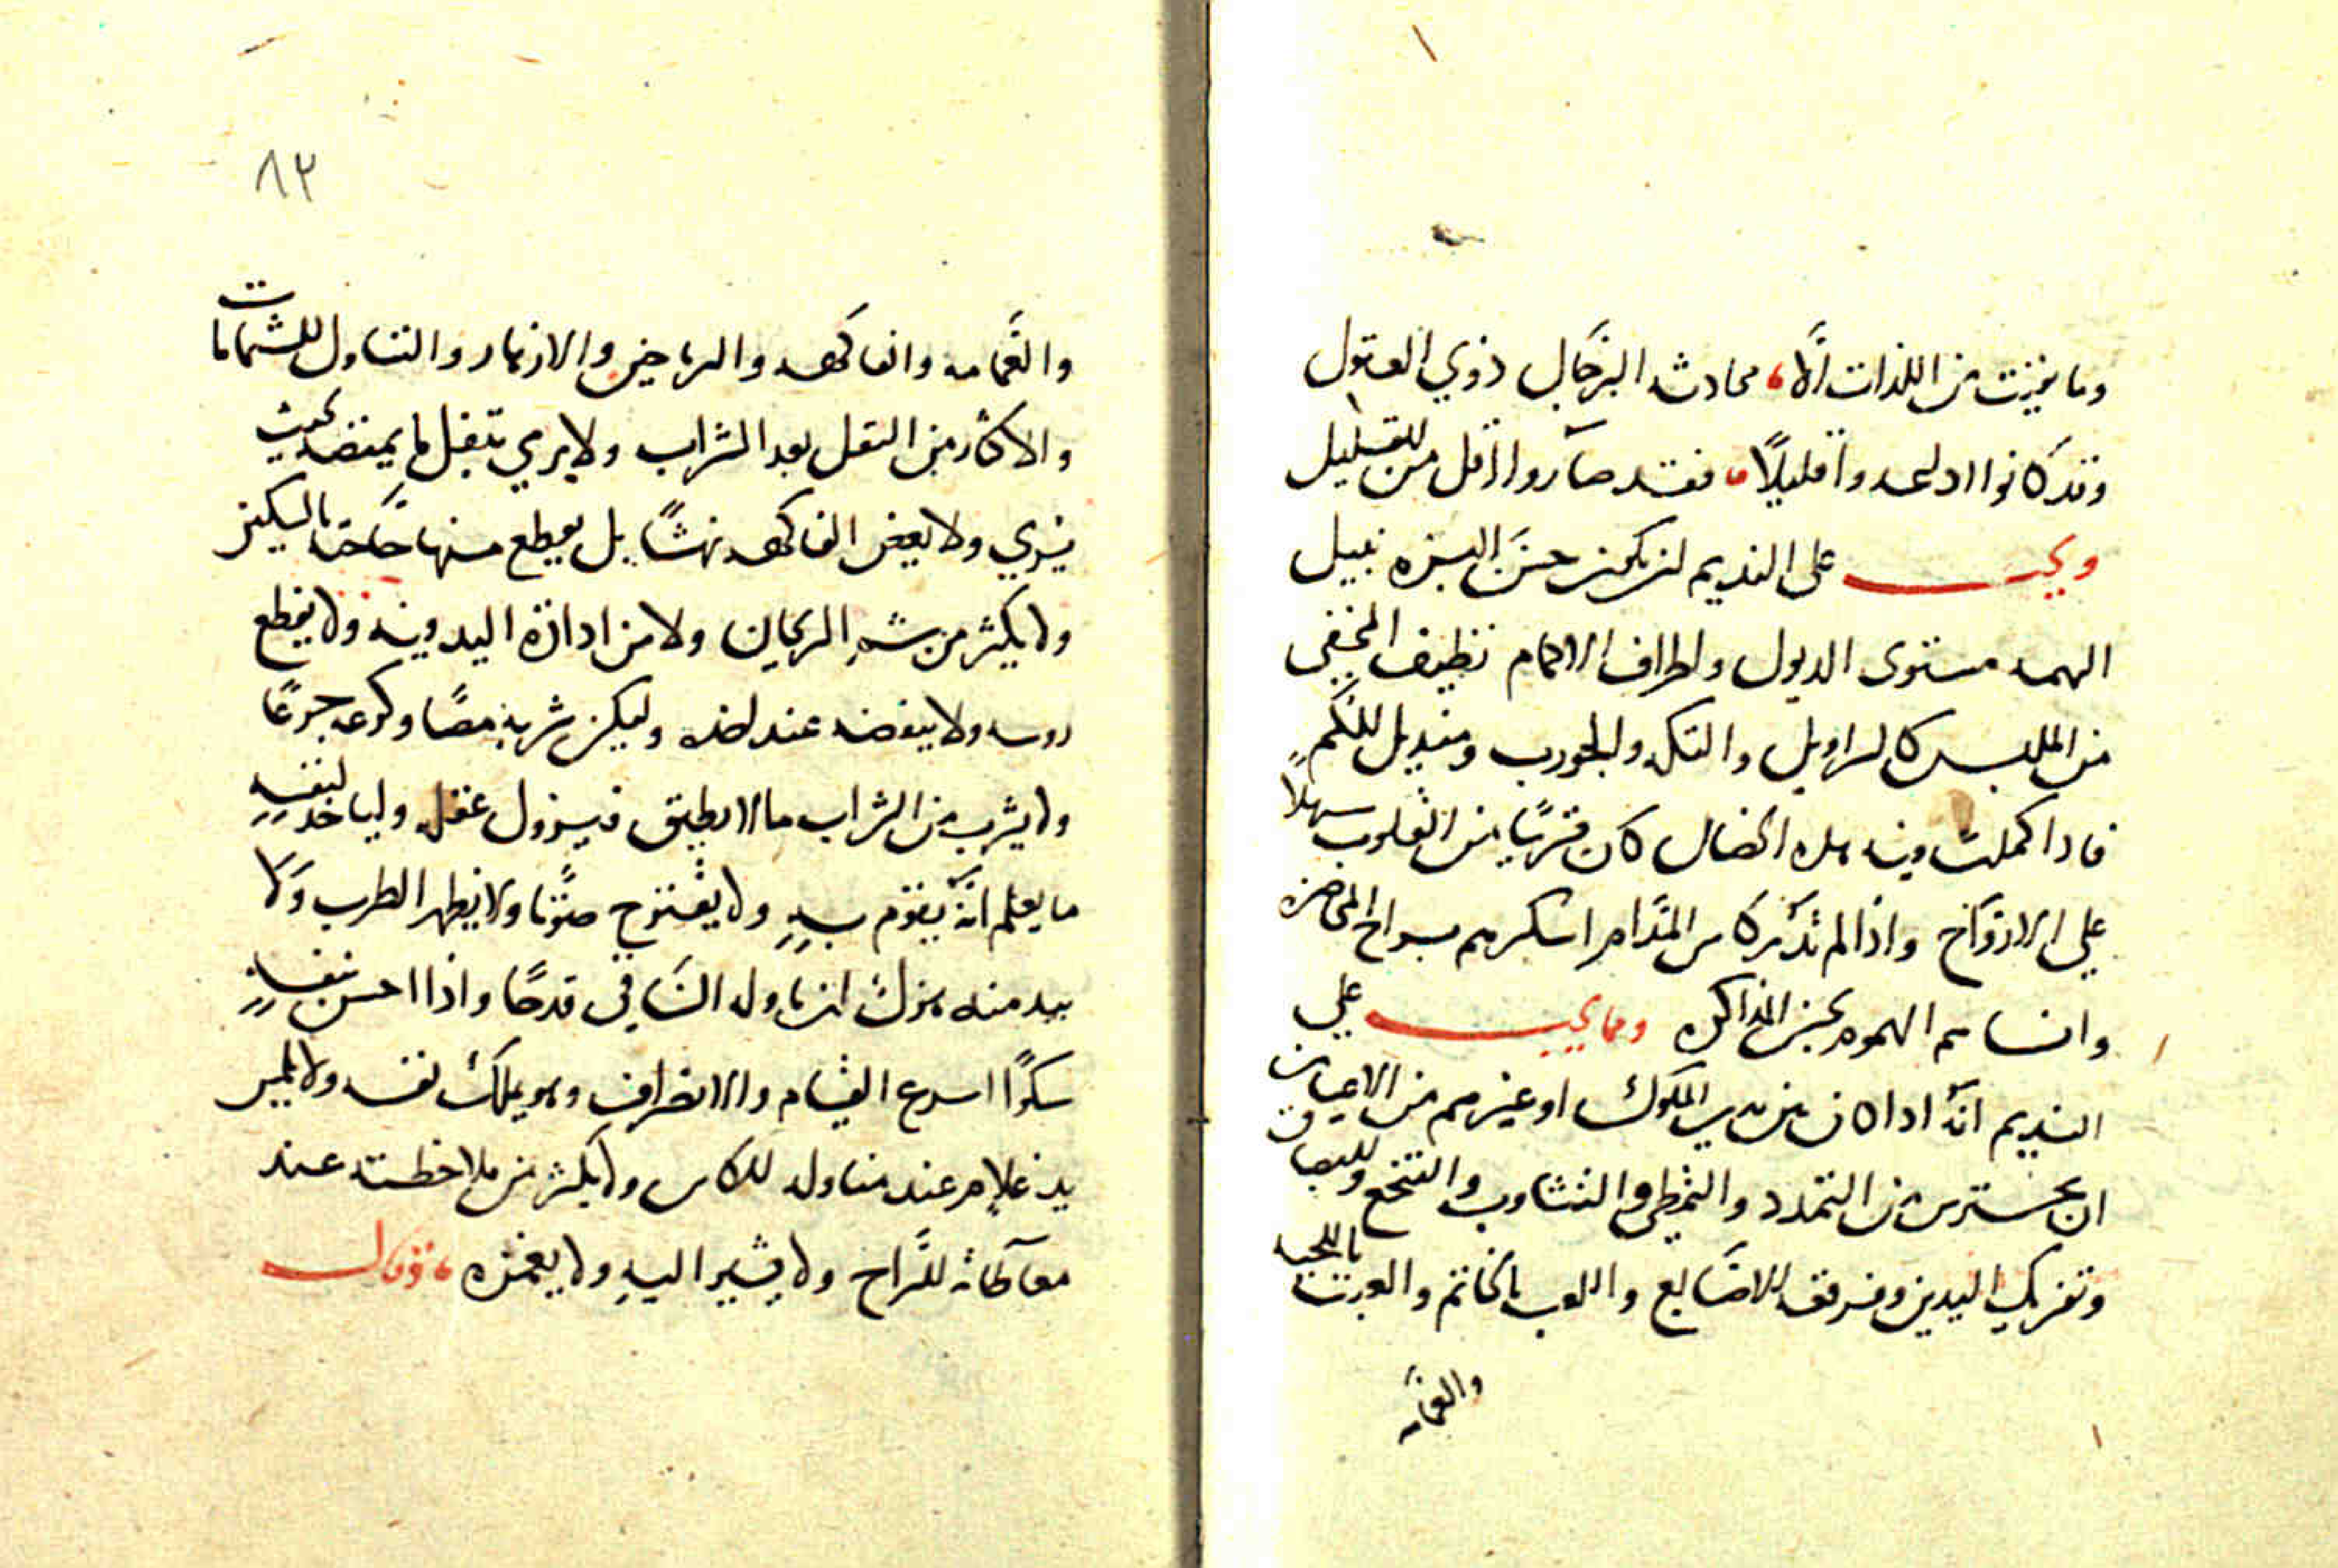 وما بقيت من اللذات الا، محادثة الرجال ذوي العقول
وقد كانوا اذا عدوا قليلاً، فقد صاروا اقل من القليل
ويجب على النديم ان يكون حسن البزه نبيل
الهمه مستوى الديول واطراف الاكمام نظيف المخفى
من الملابس كالسراويل والتكه والجورب ومنديل للكم
فاذا كملت فيه هذه الخصال كان قريبًا من القلوب سهلاً
على الارواح واذا لم تدر كاس المدام اسكرهم براح المحاضره
وانساهم الهموم بحسن المذاكره ومما يجب على
النديم انه اذا كان بين يدي الملوك او غيرهم من الاعيان
ان يحترس من التمدد والتمطي والتثاوب والتنخع والبصاق
وتفريك اليدين وفرقعة الاصابع واللعب بالخاتم والعبث باللحيه
والعمامه
٨٣
والعمامه والفاكهه والرياحين والازهار والتناول للشمامات
والاكثار من النقل بعد الشراب ولا يري بتفل ما يمضه بحيث
يري ولا يعض الفاكهه نهشًا بل يقطع منها حاجته بالسكين
ولا يكثر من شم الريحان ولا من ادارة اليد فيه ولا يقطع
روسه ولا ينفضه عند اخذه وليكن شربه مصًا وكرعه جرعًا
ولا يشرب من الشراب ما لا يطيق فيزول عقله ولياخذ لنفسه
ما يعلم انه يقوم به ولا يقترح صوتًا ولا يظهر الطرب ولا
يبد منه هزل ان ناوله الساقي قدحًا واذا احس بنفسه
سكرًا اسرع القيام والانصراف وهو يملك نفسه ولا يلمس
يد غلام عند مناوله للكاس ولا يكثر من ملاحظته عند
معاطاته للراح ولا يشير اليه ولا يغمزه، وقال